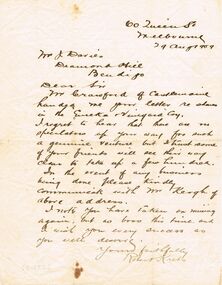 60 Queen St
Melbourne
Mr J. Davies
Diamond Hill
Bendigo
Dear Sir
Mr Crawford of Castlemaine
handed me your letter re share
in the Eureka Vineyard Coy.
I regret to hear that there are no
speculators up your way for such
a genuine venture but I trust some
of your friends will see their way
clear to take up a few hundred.
In the event of any business
being done please kindly
communicate with Mr Keogh of
above address.
I note you have taken on mining
again, but so this time and
I wish you every success as
you well deserve.
Yours faithfully